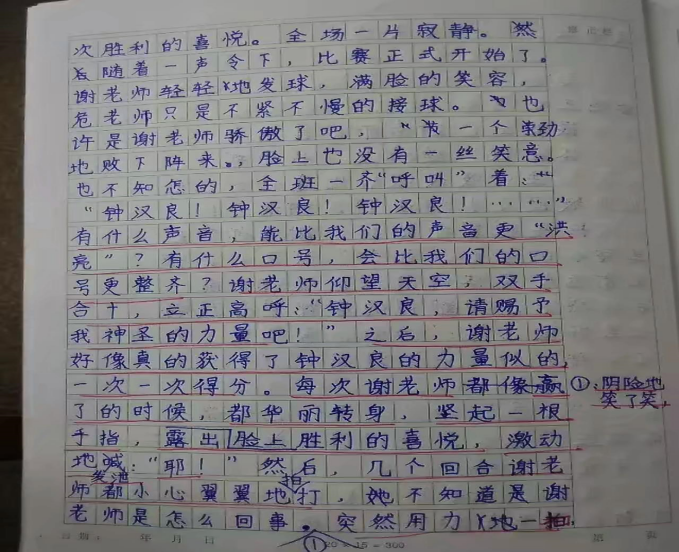 次胜利的喜悦。全场一片寂静。然
后随着一声令下，比赛正式开始了。
谢老师轻轻地发球，满脸的笑容，
危老师只是不紧不慢的接球。也
许是谢老师骄傲了吧，一个
地败下阵来。脸上也没有一丝笑意。
也不知怎的，全班一齐“呼叫”着：
“钟汉良！钟汉良！钟汉良！……”
有什么声音，能比我们的声音更“洪
亮”？有什么口号，会比我们的口
号更整齐？谢老师仰望天空，双手
合十，立正高呼：“钟汉良，请赐予
我神圣的力量吧！”之后，谢老师
好像真的获得了钟汉良的力量似的，
一次一次得分。每次谢老师都像赢 ①：阴险地
了的时候，都华丽转身，竖起一根 笑了笑，
手指，露出脸上胜利的喜悦，激动
地喊：“耶！”然后，几个回合谢老
发球 拍
师都小心翼翼地打，她不知道是谢
老师是怎么回事。突然用力地一拍
① 20×15=300
年 月 日